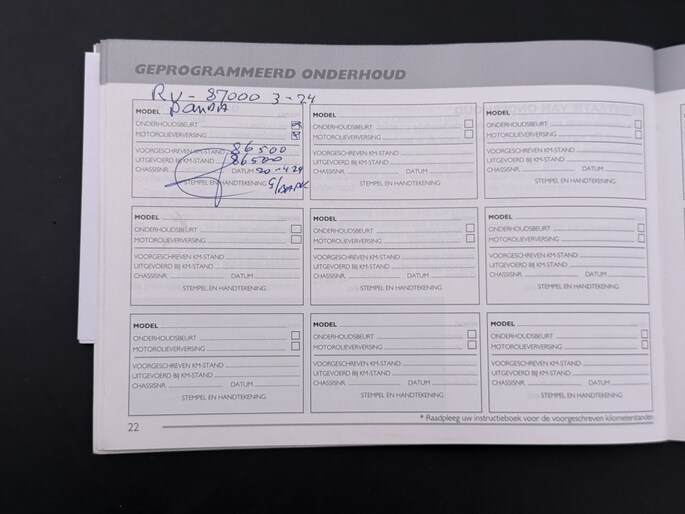 GEPROGRAMMEERD ONDERHOUD
RV - 87000 3-24
MODEL PANDA
ONDERHOUDSBEURT
MOTOROLIEVERVERSING
VOORGESCHREVEN KM-STAND 86500
UITGEVOERD BIJ KM-STAND 86500
CHASSISNR. DATUM 20-424
STEMPEL EN HANDTEKENING
MODEL
ONDERHOUDSBEURT
MOTOROLIEVERVERSING
VOORGESCHREVEN KM-STAND
UITGEVOERD BIJ KM-STAND
CHASSISNR. DATUM
STEMPEL EN HANDTEKENING
MODEL
ONDERHOUDSBEURT
MOTOROLIEVERVERSING
VOORGESCHREVEN KM-STAND
UITGEVOERD BIJ KM-STAND
CHASSISNR. DATUM
STEMPEL EN HANDTEKENING
MODEL
ONDERHOUDSBEURT
MOTOROLIEVERVERSING
VOORGESCHREVEN KM-STAND
UITGEVOERD BIJ KM-STAND
CHASSISNR. DATUM
STEMPEL EN HANDTEKENING
MODEL
ONDERHOUDSBEURT
MOTOROLIEVERVERSING
VOORGESCHREVEN KM-STAND
UITGEVOERD BIJ KM-STAND
CHASSISNR. DATUM
STEMPEL EN HANDTEKENING
MODEL
ONDERHOUDSBEURT
MOTOROLIEVERVERSING
VOORGESCHREVEN KM-STAND
UITGEVOERD BIJ KM-STAND
CHASSISNR. DATUM
STEMPEL EN HANDTEKENING
MODEL
ONDERHOUDSBEURT
MOTOROLIEVERVERSING
VOORGESCHREVEN KM-STAND
UITGEVOERD BIJ KM-STAND
CHASSISNR. DATUM
STEMPEL EN HANDTEKENING
MODEL
ONDERHOUDSBEURT
MOTOROLIEVERVERSING
VOORGESCHREVEN KM-STAND
UITGEVOERD BIJ KM-STAND
CHASSISNR. DATUM
STEMPEL EN HANDTEKENING
MODEL
ONDERHOUDSBEURT
MOTOROLIEVERVERSING
VOORGESCHREVEN KM-STAND
UITGEVOERD BIJ KM-STAND
CHASSISNR. DATUM
STEMPEL EN HANDTEKENING
* Raadpleeg uw instructieboek voor de voorgeschreven kilometerstanden
22